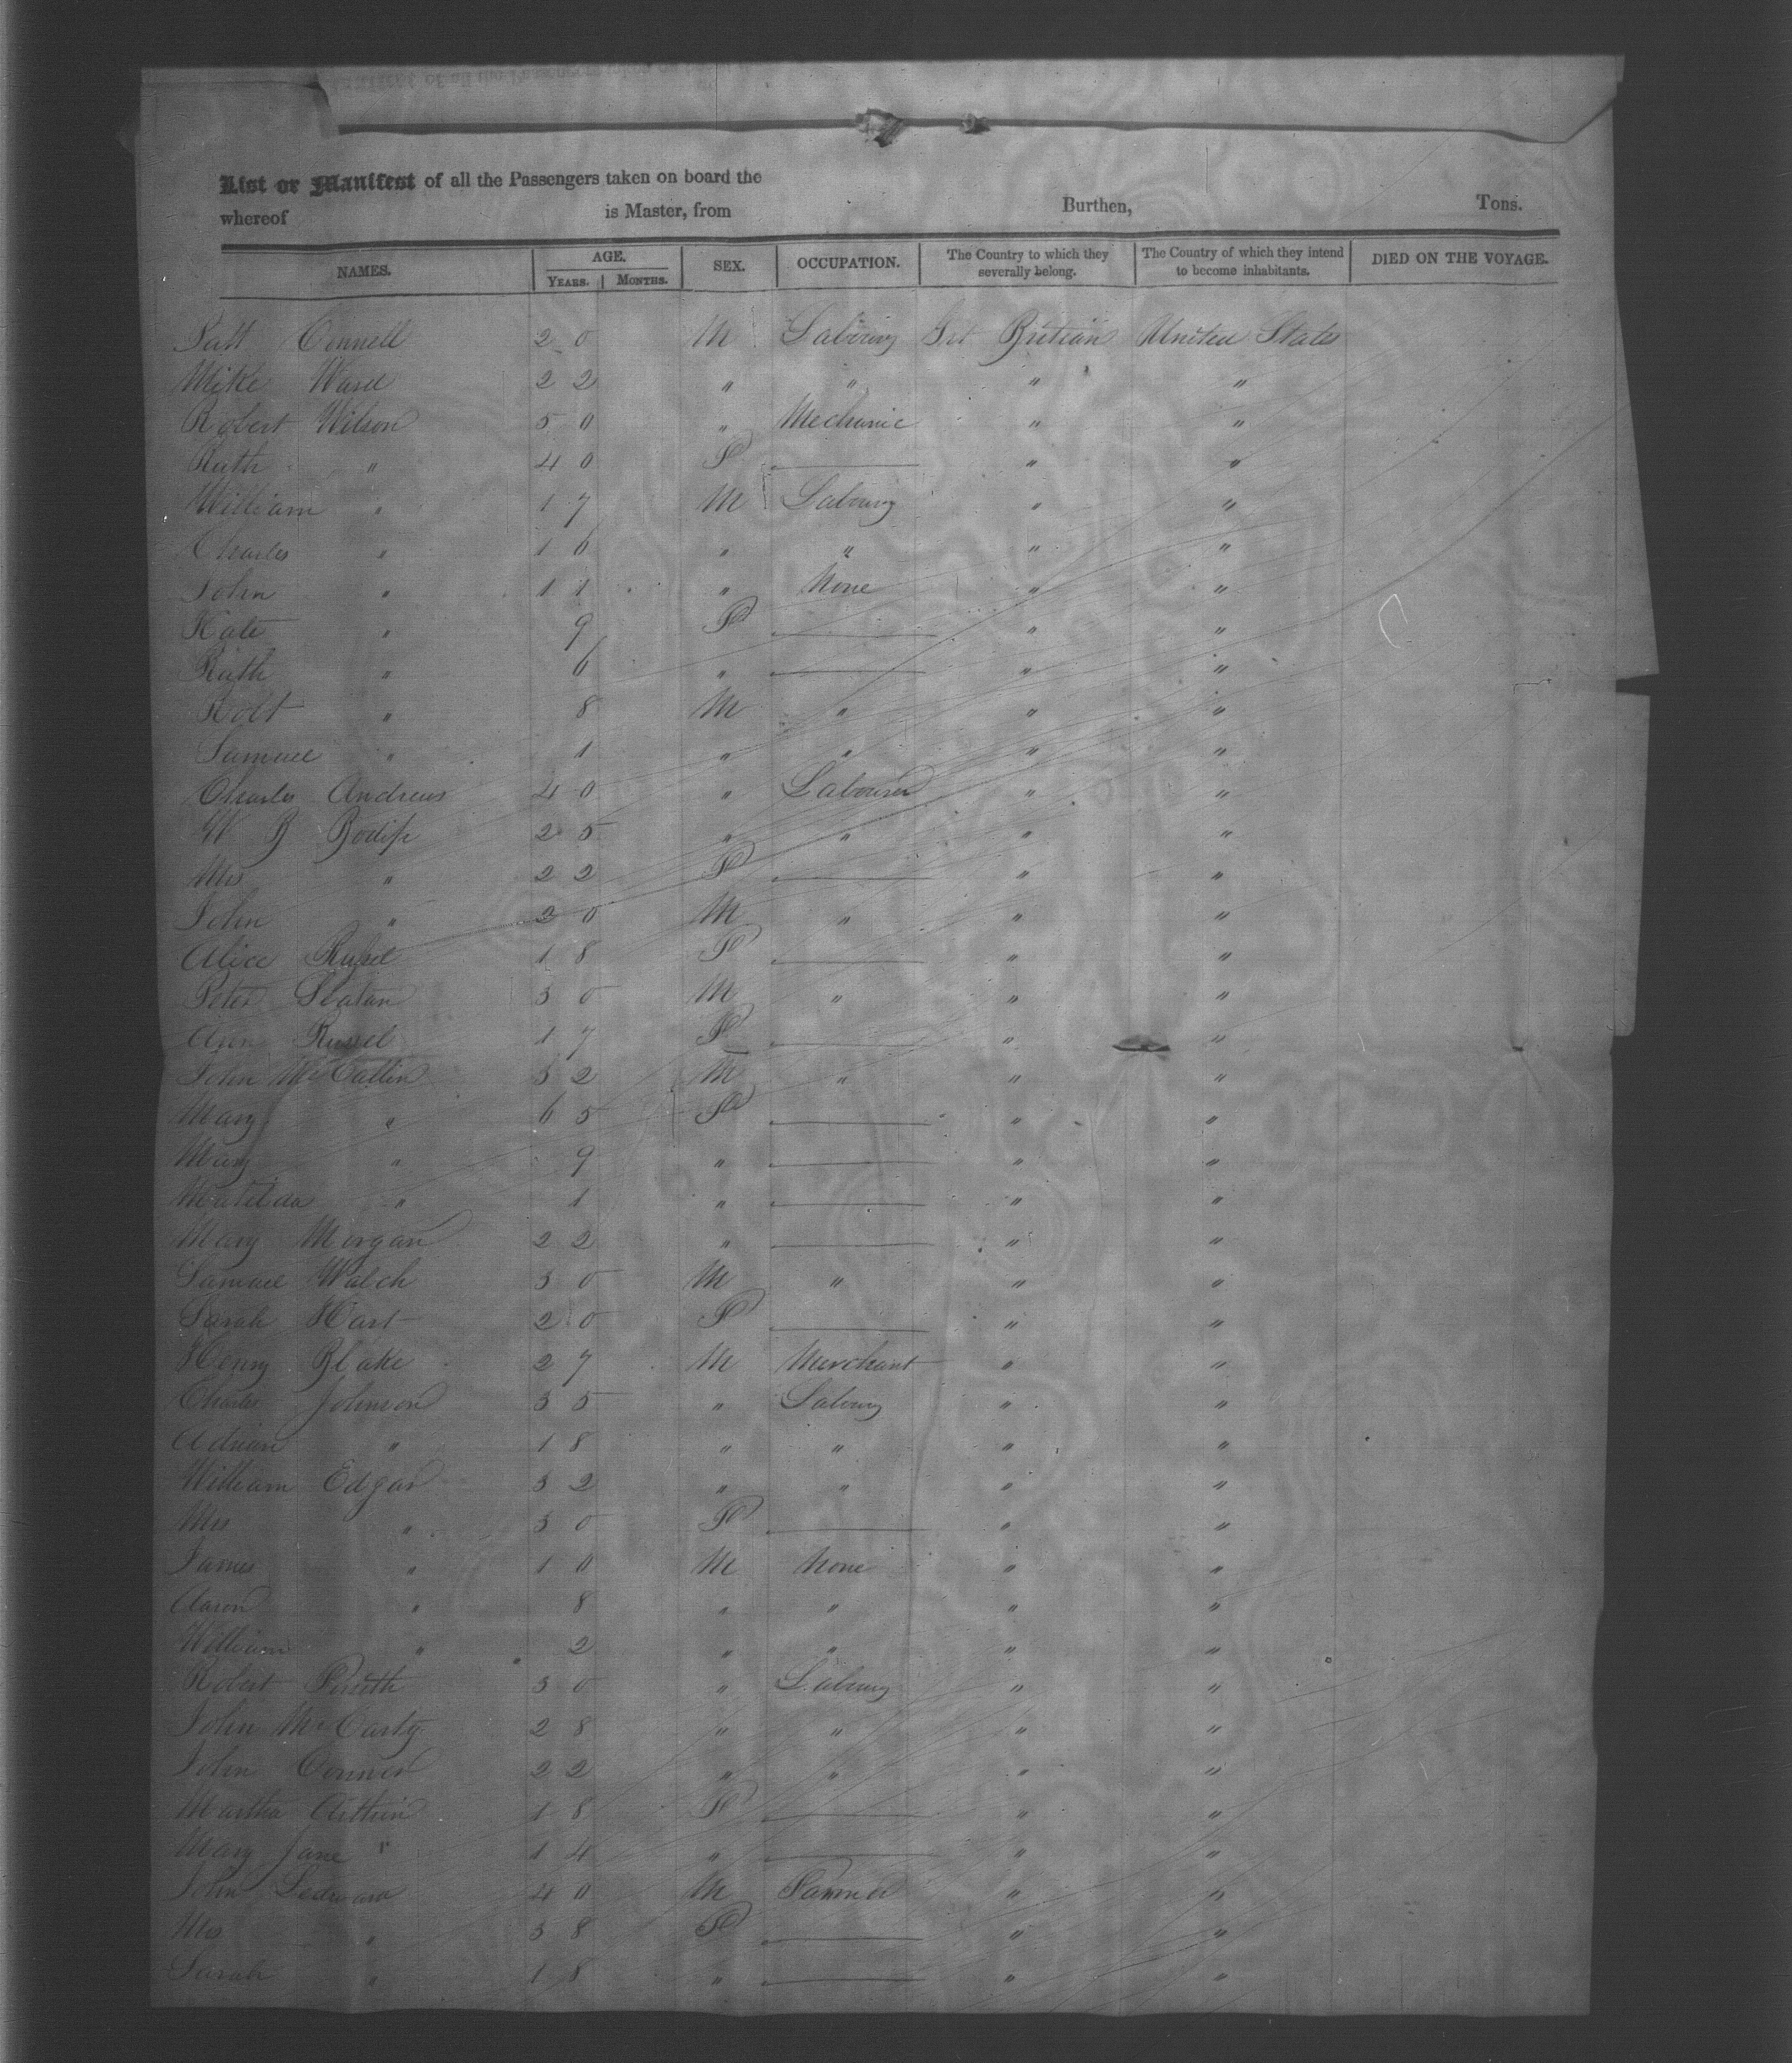 List or Manifest of all the Passengers taken on board the
whereof is Master, from Burthen, Tons.
NAMES. AGE. YEARS. MONTHS. SEX. OCCUPATION. The Country to which they severally belong. The Country of which they intend to become inhabitants. DIED ON THE VOYAGE.
Patt Connell 20 M Labourg Grt Britian United States
Mike Ward 22 " " " "
Robert Wilson 50 " Mechanic " "
Ruth " 40 F — " "
William " 17 M Labourg " "
Charles " 16 " " " "
John " 11 " None " "
Kate " 9 F — " "
Ruth " 6 " — " "
Robt " 8 M " " "
Samuel " 1 " " " "
Charles Andrews 40 " Labourer " "
W B 25 " " " "
Mrs " 22 F — " "
John " 20 M " " "
Alice Russel 18 F — " "
Peter 30 M " " "
Ann Russel 17 F — " "
John 32 M " " "
Mary " 65 F — " "
Mary " 9 " — " "
Matilda " 1 " — " "
Mary Morgan 22 " — " "
Samuel Walch 30 M " " "
Sarah Hart 20 F — " "
Henry Blake 27 M Merchant " "
Charles Johnson 35 " Labourg " "
Adrian " 18 " " " "
William Edgar 32 " " " "
Mrs " 30 F — " "
James " 10 M None " "
Aaron " 8 " " " "
William " 2 " " " "
Robert 30 " Labourg " "
John McCarty 28 " " " "
John Conner 22 " " " "
Martha 18 F — " "
Mary Jane " 14 " — " "
John 40 M Farmer " "
Mrs " 38 F — " "
Sarah " 18 " — " "